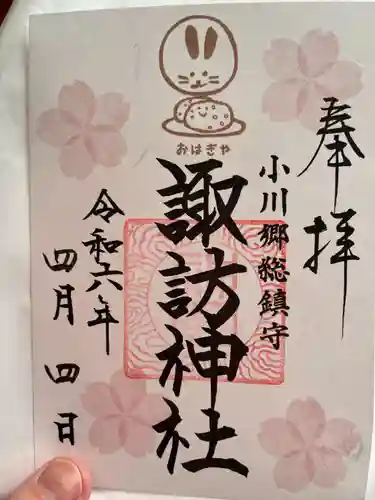 奉拝
小川郷総鎮守
諏訪神社
おはぎや
令和六年
四月四日